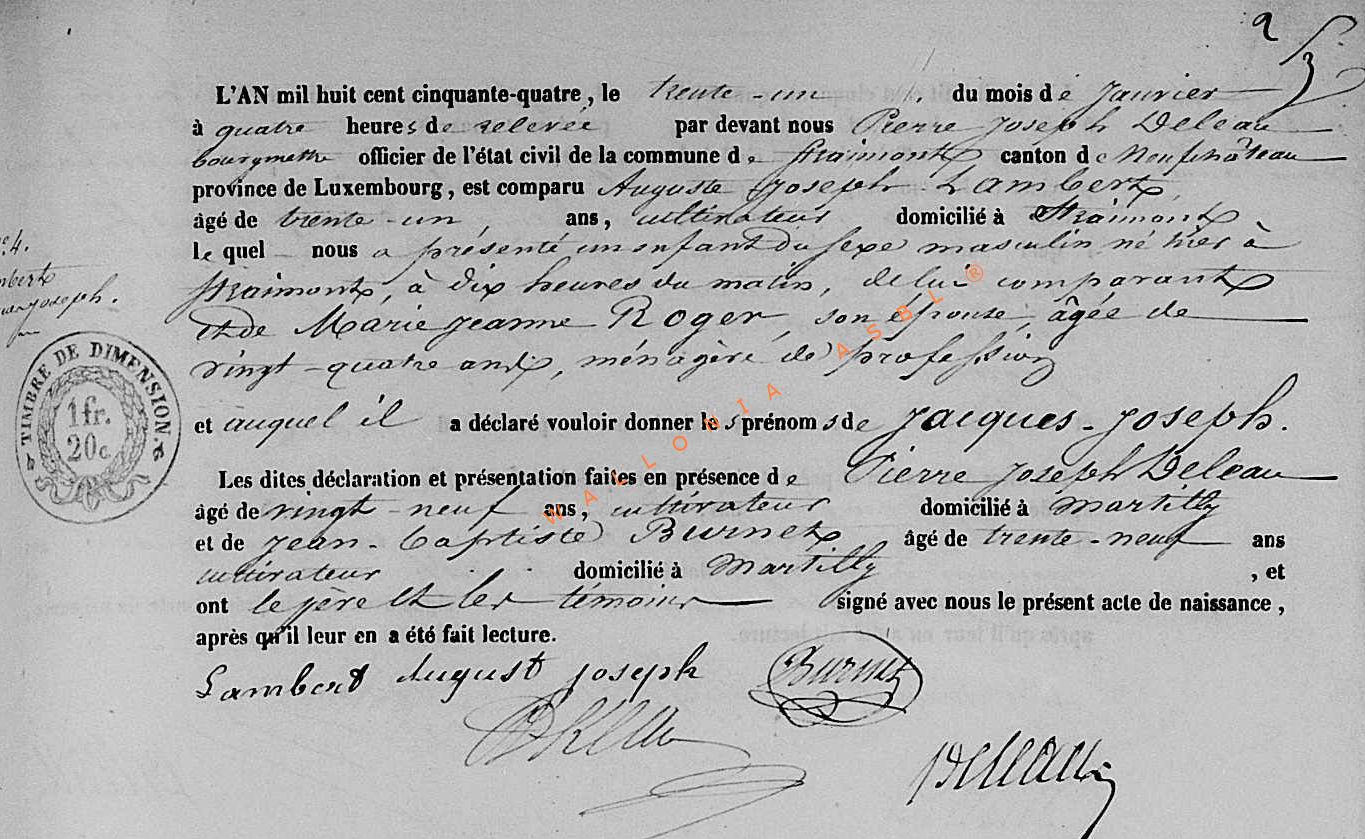 2
L'AN mil huit cent cinquante-quatre, le trente-un du mois de Janvier
à quatre heures de relevée par devant nous Pierre Joseph Deleau
bourgmestre officier de l'état civil de la commune de Straimont canton de Neufchâteau
province de Luxembourg, est comparu Auguste Joseph Lambert
âgé de trente-un ans, cultivateur domicilié à Straimont
le quel nous a présenté un enfant du sexe masculin né hier à
Straimont, à dix heures du matin, de lui comparant
et de Marie Jeanne Roger, son épouse, âgée de
vingt-quatre ans, ménagère de profession
et auquel il a déclaré vouloir donner les prénoms de Jacques-Joseph.
Les dites déclaration et présentation faites en présence de Pierre Joseph Deleau
âgé de vingt-neuf ans, cultivateur domicilié à Martilly
et de Jean-Baptiste Burnet âgé de trente-neuf ans
cultivateur domicilié à Martilly, et
ont le père et les témoins signé avec nous le présent acte de naissance,
après qu'il leur en a été fait lecture.
Lambert August Joseph Burnet
Deleau
Deleau
4.
mbert
Joseph.
TIMBRE DE DIMENSION
1fr.
20c
WALLONIA ASBL ®